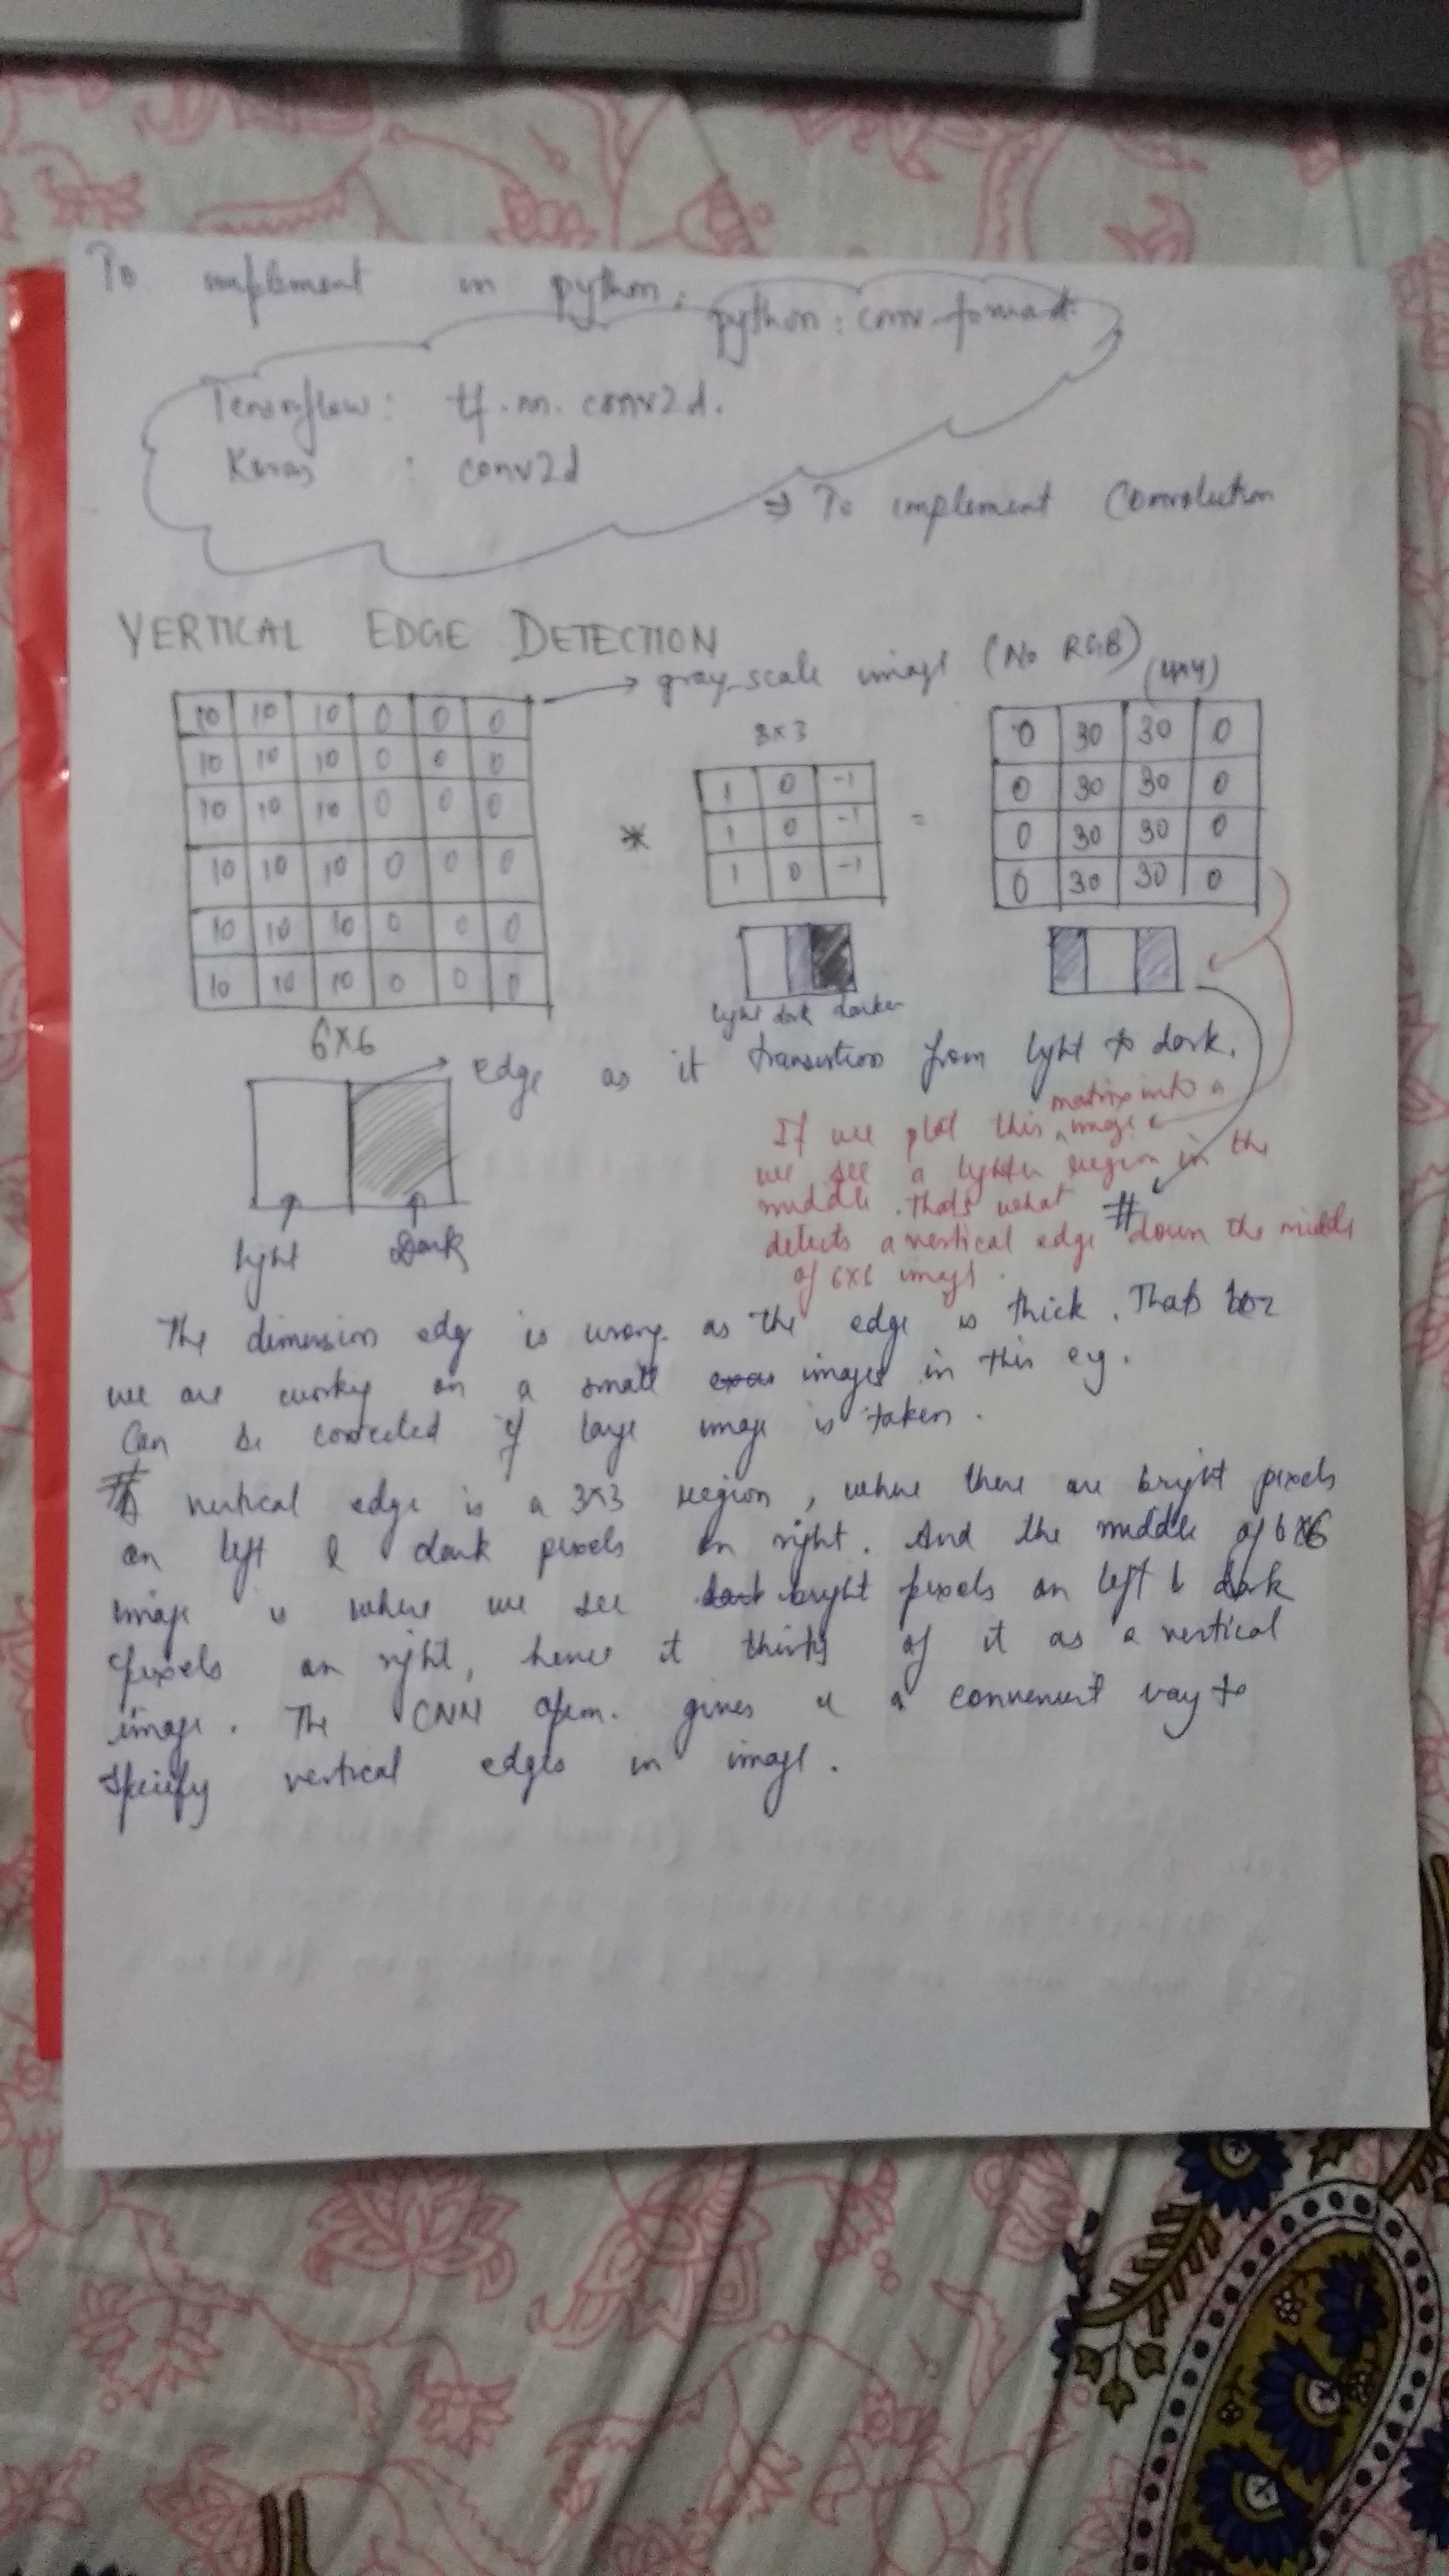 To implement in python:
python: conv-forward
Tensorflow: tf.nn.conv2d.
Keras : conv2d
⇒ To implement Convolution
VERTICAL EDGE DETECTION
→ gray scale image (No RGB)
(4x4)
3×3
10 10 10 0 0 0
10 10 10 0 0 0
10 10 10 0 0 0
10 10 10 0 0 0
10 10 10 0 0 0
10 10 10 0 0 0
6×6
*
1 0 -1
1 0 -1
1 0 -1
=
0 30 30 0
0 30 30 0
0 30 30 0
0 30 30 0
light dark darker
edge as it transition from light to dark.
light Dark
If we plot this matrix into a image
we see a lighter region in the
middle. Thats what #
detects a vertical edge down the middle
of 6×6 image.
The dimension edge is wrong as the edge is thick. Thats bcz
we are working on a small images in this eg.
Can be corrected if large image is taken.
# A vertical edge is a 3×3 region, where there are bright pixels
on left & dark pixels on right. And the middle of 6×6
image is where we see bright pixels on left & dark
pixels on right, hence it thinks of it as a vertical
image. The CNN opern. gives us a convenient way to
specify vertical edges in image.